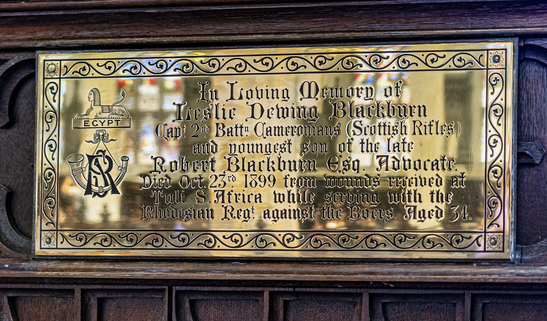 In Loving Memory of
Leslie Dewing Blackburn
Capt 2nd Battn Cameronians (Scottish Rifles)
and youngest son of the late
Robert Blackburn Esq. Advocate
Died Oct. 23rd 1899 from wounds received at
Tuli S. Africa while serving with the
Rhodesian Regt against the Boers. Aged 34.
EGYPT
SR